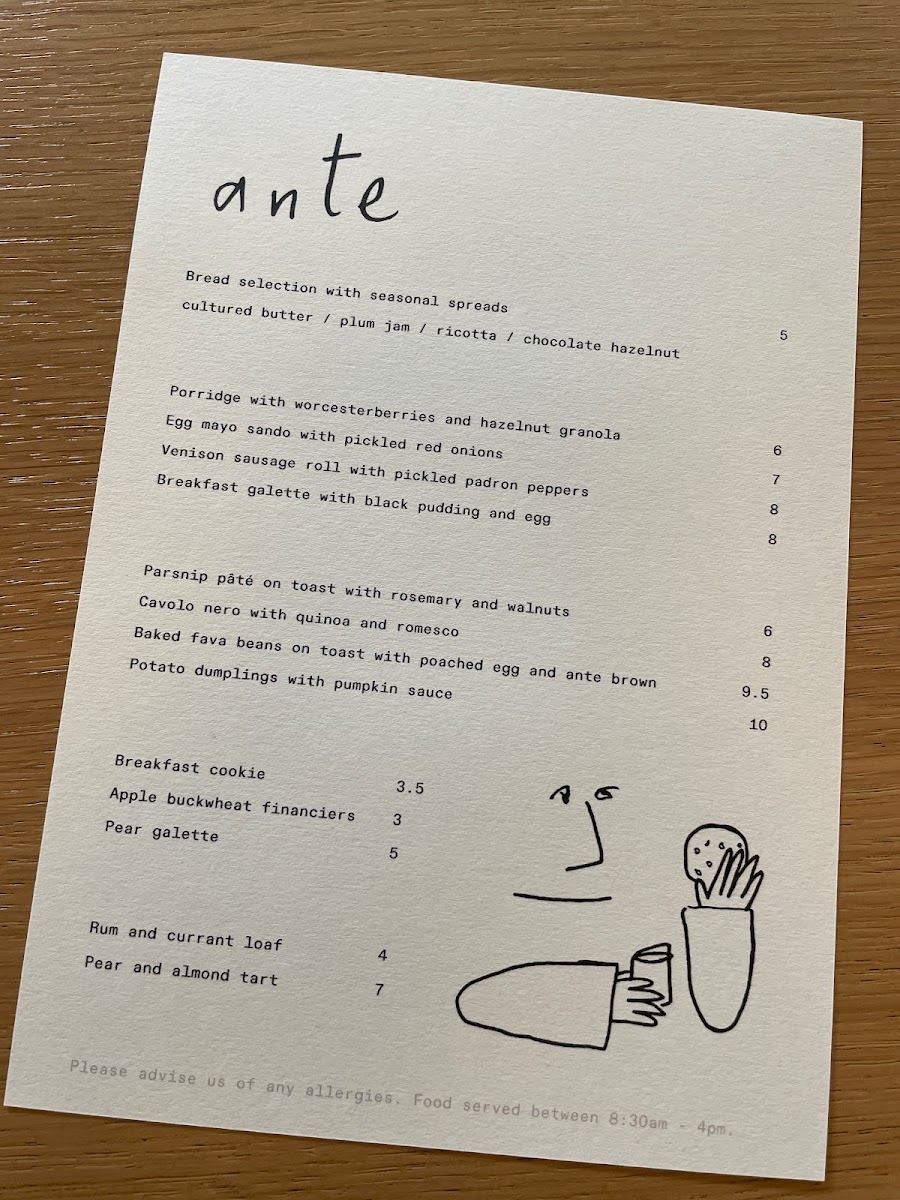 ante
Bread selection with seasonal spreads
cultured butter / plum jam / ricotta / chocolate hazelnut 5
Porridge with worcesterberries and hazelnut granola 6
Egg mayo sando with pickled red onions 7
Venison sausage roll with pickled padron peppers 8
Breakfast galette with black pudding and egg 8
Parsnip pâté on toast with rosemary and walnuts 6
Cavolo nero with quinoa and romesco 8
Baked fava beans on toast with poached egg and ante brown 9.5
Potato dumplings with pumpkin sauce 10
Breakfast cookie 3.5
Apple buckwheat financiers 3
Pear galette 5
Rum and currant loaf 4
Pear and almond tart 7
Please advise us of any allergies. Food served between 8:30am - 4pm.